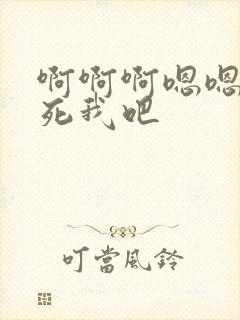 啊啊啊嗯嗯
死我吧
叮當風鈴